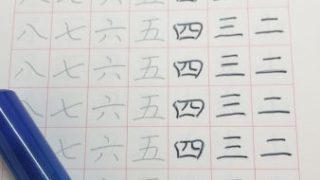 八 七 六 五 四 三 二
八 七 六 五 四 三 二
八 七 六 五 四 三 二
八 七 六 五 四 三 二